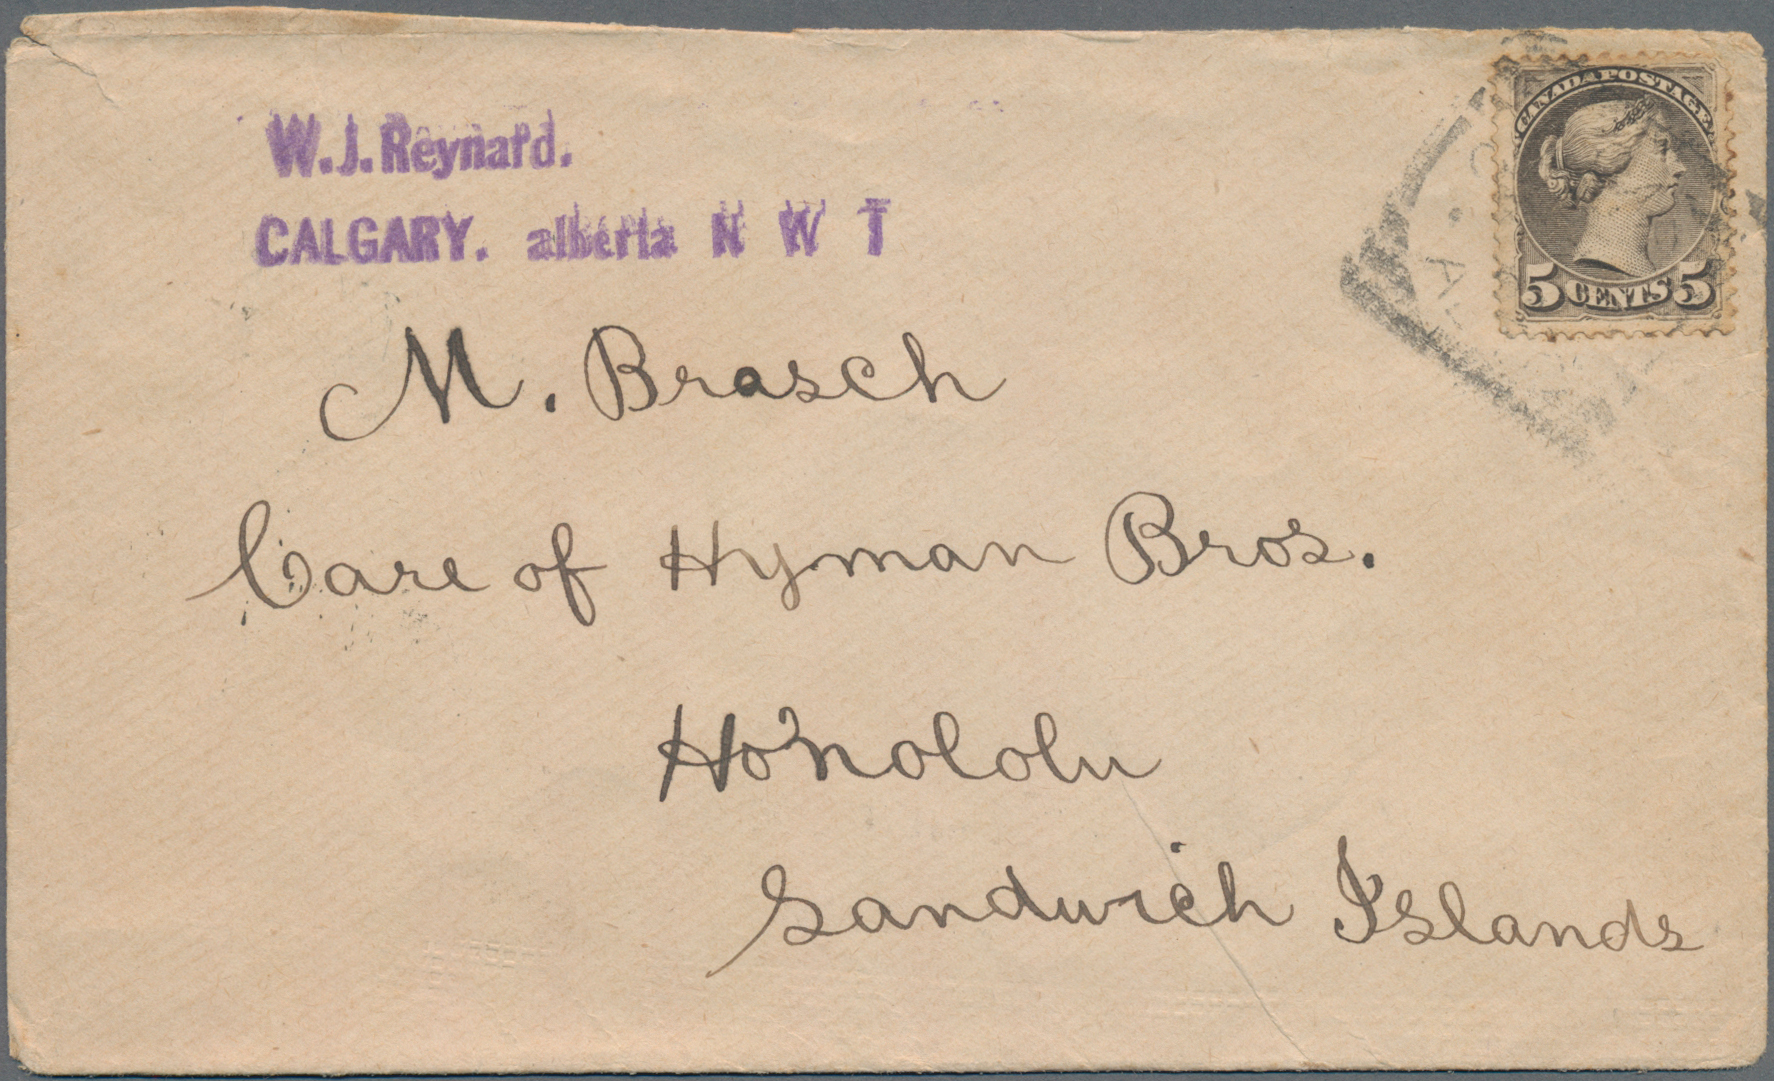 W.J.Reynard.
CALGARY. alberta N W T
CANADA POSTAGE
5 CENTS 5
M. Brasch
Care of Hyman Bros.
Honololu
Sandwich Islands